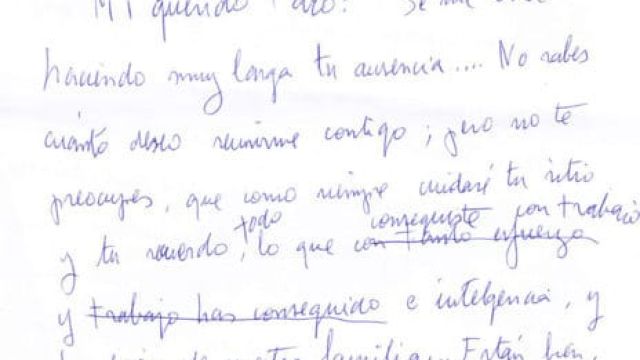 Mi querido
haciendo muy larga tu ausencia.... No sabes
cuánto deseo reunirme contigo; pero no te
preocupes, que como siempre cuidaré tu sitio
todo conseguiste con trabajo
y tu recuerdo, lo que con tanto esfuerzo
y trabajo has conseguido e inteligencia, y
familia. Están bien.